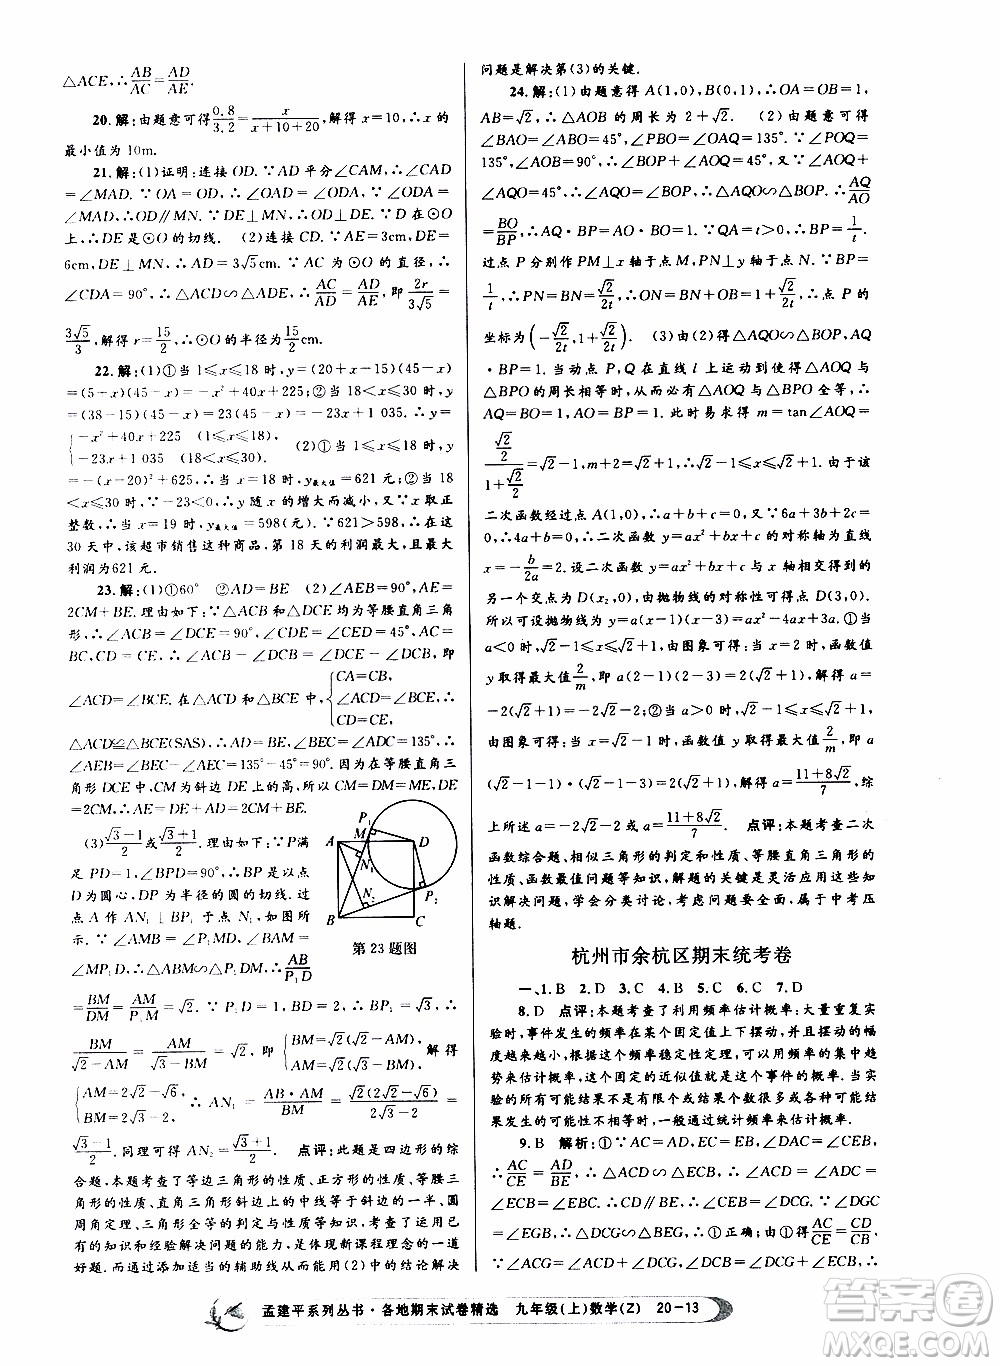 △ACE,∴AB/AC=AD/AE.
20.解:由题意可得0.8/3.2=x/(x+10+20),解得x=10,∴x的
最小值为10m.
21.解:(1)证明:连接OD.∵AD平分∠CAM,∴∠CAD
=∠MAD.∵OA=OD,∴∠OAD=∠ODA,∵∠ODA=
∠MAD,∴OD∥MN.∵DE⊥MN,∴DE⊥OD.∵D在⊙O
上,∴DE是⊙O的切线. (2)连接CD.∵AE=3cm,DE=
6cm,DE⊥MN,∴AD=3√5cm.∵AC为⊙O的直径,∴
∠CDA=90°,∴△ACD∽△ADE,∴AC/AD=AD/AE,即2r/3√5=
3√5/3,解得r=15/2,∴⊙O的半径为15/2cm.
22.解:(1)①当1≤x≤18时,y=(20+x-15)(45-x)
=(5+x)(45-x)=-x²+40x+225;②当18<x≤30时,y
=(38-15)(45-x)=-23x+1 035.∴y=
{-x²+40x+225 (1≤x≤18),
-23x+1 035(18<x≤30). (2)①当1≤x≤18时,y
=-(x-20)²+625,当x=18时,y最大值=621元;②当18
<x≤30时,∵y随x的增大而减小,∴x取正
整数,当x=19时,y最大值=598(元).∵621>598,∴在这
30天中,该超市销售这种商品,第18天的利润最大,且最大
利润为621元.
23.解:(1)①60° ②AD=BE (2)∠AEB=90°,AE=
2CM+BE.理由如下:∵△ACB和△DCE均为等腰直角三角
形,∴∠ACB=∠DCE=90°,∠CDE=∠CED=45°,AC=
BC,CD=CE,∴∠ACB-∠DCB=∠DCE-∠DCB,即
∠ACD=∠BCE.在△ACD和△BCE中,{CA=CB,
∠ACD=∠BCE,∴
CD=CE,
△ACD≌△BCE(SAS).∴AD=BE,∠BEC=∠ADC=135°,∴
∠AEB=∠BEC-∠CED=135°-45°=90°.因为在等腰直角三角
形DCE中,CM为斜边DE上的高,∴CM=DM=ME,∴DE=
2CM.∴AE=DE+AD=2CM+BE.
(3)(√3-1)/2或(√3+1)/2.理由如下:∵P满
足PD=1,∠BPD=90°,∴BP是以点
D为圆心,DP为半径的圆的切线.过
点A作AN₁⊥BP₁于点N₁,如图所
示.∵∠AMB=∠P₁MD,∠MAB=
∠MP₁D,∴△ABM∽△P₁DM,∴AB/P₁D
=BM/DM=AM/P₁M=√2.∵P₁D=1,BD=2,∴BP₁=√3,∴
BM/(√2-AM)=AM/(√3-BM)=√2,即{BM=√2(√2-AM),
AM=√2(√3-BM).解得
{AM=2√2-√6,
BM=2√3-2. ∴AN₁=AB·AM/BM=√2(2√2-√6)/(2√3-2)=
(√3-1)/2.同理可得AN₂=(√3+1)/2. 点评:本题是四边形的综
合题,本题考查了等边三角形的性质、正方形的性质、直
角三角形的性质、直角三角形斜边上的中线等于斜边的一半、圆
周角定理、三角形全等的判定与性质等知识,考查了运用已
有的知识和经验解决问题的能力,是体现新课程理念的一道
好题.而通过添加适当的辅助线从而能用(2)中的结论解决
P₁
M
A
D
N₁
N₂
P₂
B
C
第23题图
问题是解决第(3)的关键.
24.解:(1)由题意得A(1,0),B(0,1),∴OA=OB=1,
AB=√2,∴△AOB的周长为2+√2. (2)由题意可得
∠BAO=∠ABO=45°,∠PBO=∠OAQ=135°.∵∠POQ=
135°,∠AOB=90°,∴∠BOP+∠AOQ=45°,又∵∠AOQ+
∠AQO=45°,∴∠AQO=∠BOP,∴△AQO∽△BOP,∴AQ/AO
=BO/BP,∴AQ·BP=AO·BO=1.∵AQ=t>0,∴BP=1/t.
过点P分别作PM⊥x轴于点M,PN⊥y轴于点N,∵BP=
1/t,∴PN=BN=√2/2t,∴ON=OB+BN=1+√2/2t,∴点P的
坐标为(-√2/2t,1+√2/2t). (3)由(2)得△AQO∽△BOP,AQ
·BP=1.当动点P,Q在直线l上运动时,△AOQ与
△BPO的周长相等时,从而必有△AOQ与△BPO全等,∴
AQ=BO=1,AO=BP=1.此时易求得m=tan∠AOQ=
(√2/2)/(1+√2/2)=√2-1,m+1=√2,1/m=1/(√2-1)=√2+1.由于该
二次函数经过点A(1,0),∴a+b+c=0,又∵6a+3b+2c=
0,∴b=-4a,c=3a,∴二次函数y=ax²+bx+c的对称轴为直线
x=-b/2a=2.设二次函数y=ax²+bx+c的图象与x轴的
另一个交点为D(x₂,0),由抛物线的对称性可得D(3,0).
所以可设抛物线为y=a(x-1)(x-3)=ax²-4ax+3a.①当
a<0时,∵√2≤x≤√2+1,∴由图象可得当x=2时,函数值
y取得最大值2/m=2/(√2-1),即a(2-1)(2-3)=2/(√2-1),解得a=
-2(√2+1)=-2√2-2;②当a>0时,∵√2≤x≤√2+1,∴
由图象可得当x=√2+1时,函数值y取得最大值2/m,即a
(√2+1-1)·(√2+1-3)=2/(√2-1),解得a=(11+8√2)/7,综
上所述a=-2√2-2或a=(11+8√2)/7. 点评:本题考查二次
函数综合题、相似三角形的判定和性质、等腰三角形的性
质、函数最值问题等知识,解题的关键是灵活应用这些知
识解决问题,学会分类讨论,考虑问题要全面,属于中考压
轴题.
杭州市余杭区期末统考卷
一、1.B 2.D 3.A 4.D 5.B 6.C 7.D
8.D 点评:本题考查了利用频率估计概率:大量重复实
验时,事件发生的频率在某个固定值上下摆动,并且摆动的幅
度越来越小,根据这个频率稳定性定理,可以用频率的集中趋
势来估计概率,这个固定的近似值就是这个事件的概率.当
实验的所有可能结果不是有限个或结果个数很多,或各种可
能的结果发生的可能性不相等时,一般通过频率来估计概率.
9.B 解析:①∵AC·BE=AD·CE,
∴AC/CE=AD/BE.∵∠DAC=∠ECB,∴△ADC∽△ECB,∴
∠ECB=∠EBC.∵∠ECB=∠DCG.∴②∵∠DGC
=∠EGB,∴△DCG∽△EGB;由①得AC/CE=CD/CB
∵∠ACE=∠DCE+∠DCA,∠DCB=∠DCE+∠BCE
孟建平系列丛书·各地期末试卷精选 九年级(上)数学(Z) 20-13
答案圈
MXQE.COM